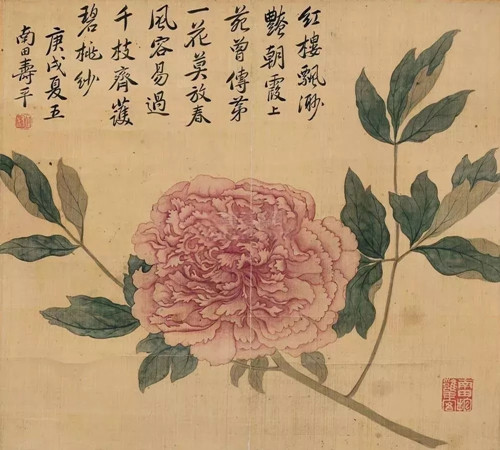 紅樓飄渺
豔朝霞上
苑曾傳第
一花莫放春
風容易過
千枝齊護
碧桃紗
庚戌夏五
南田壽平